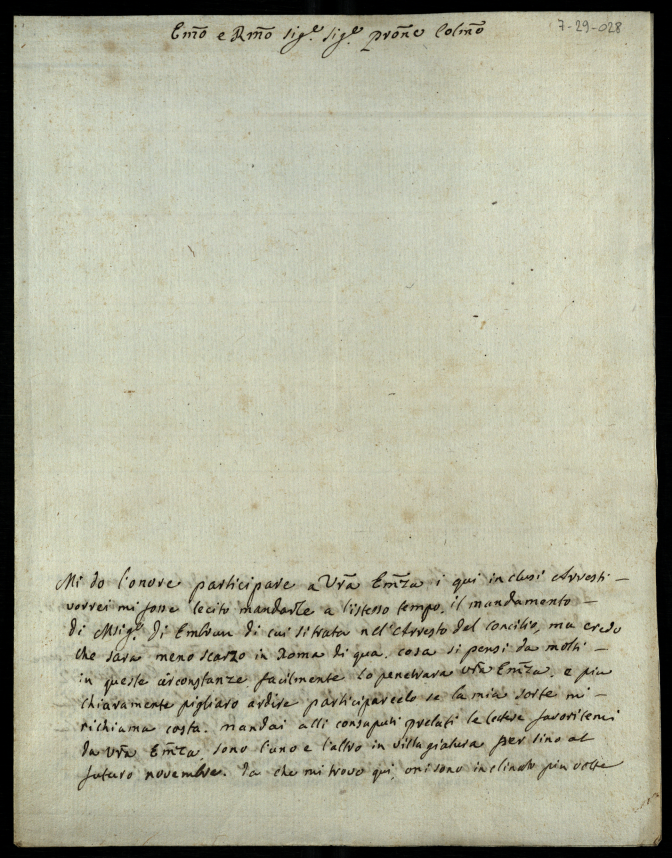 7-29-028
Em̃o e Rm̃o Sig.e Sig.e Prõne Colm̃o
Mi do l'onore participare a Vrã Em̃za i qui inclusi Arresti –
vorrei mi fosse lecito mandarle a l'istesso tempo il mandamento –
di Msig.r di Embrun di cui si trata nell'Arresto del concilio, ma credo
che sara meno scarzo in Roma di qua. cosa si pensi da molti –
in queste circonstanze facilmente lo penetrara Vrã Em̃za. e piu
chiaramente pigliaro ardire participarcelo se la mia sorte mi –
richiama costa. mandai alli consaputi prelati le lettere favoritemi
da Vrã Em̃za, sono l'uno e l'altro in villagiatura per sino al
futuro novembre. Da che mi trovo qui, mi sono inclinato piu volte